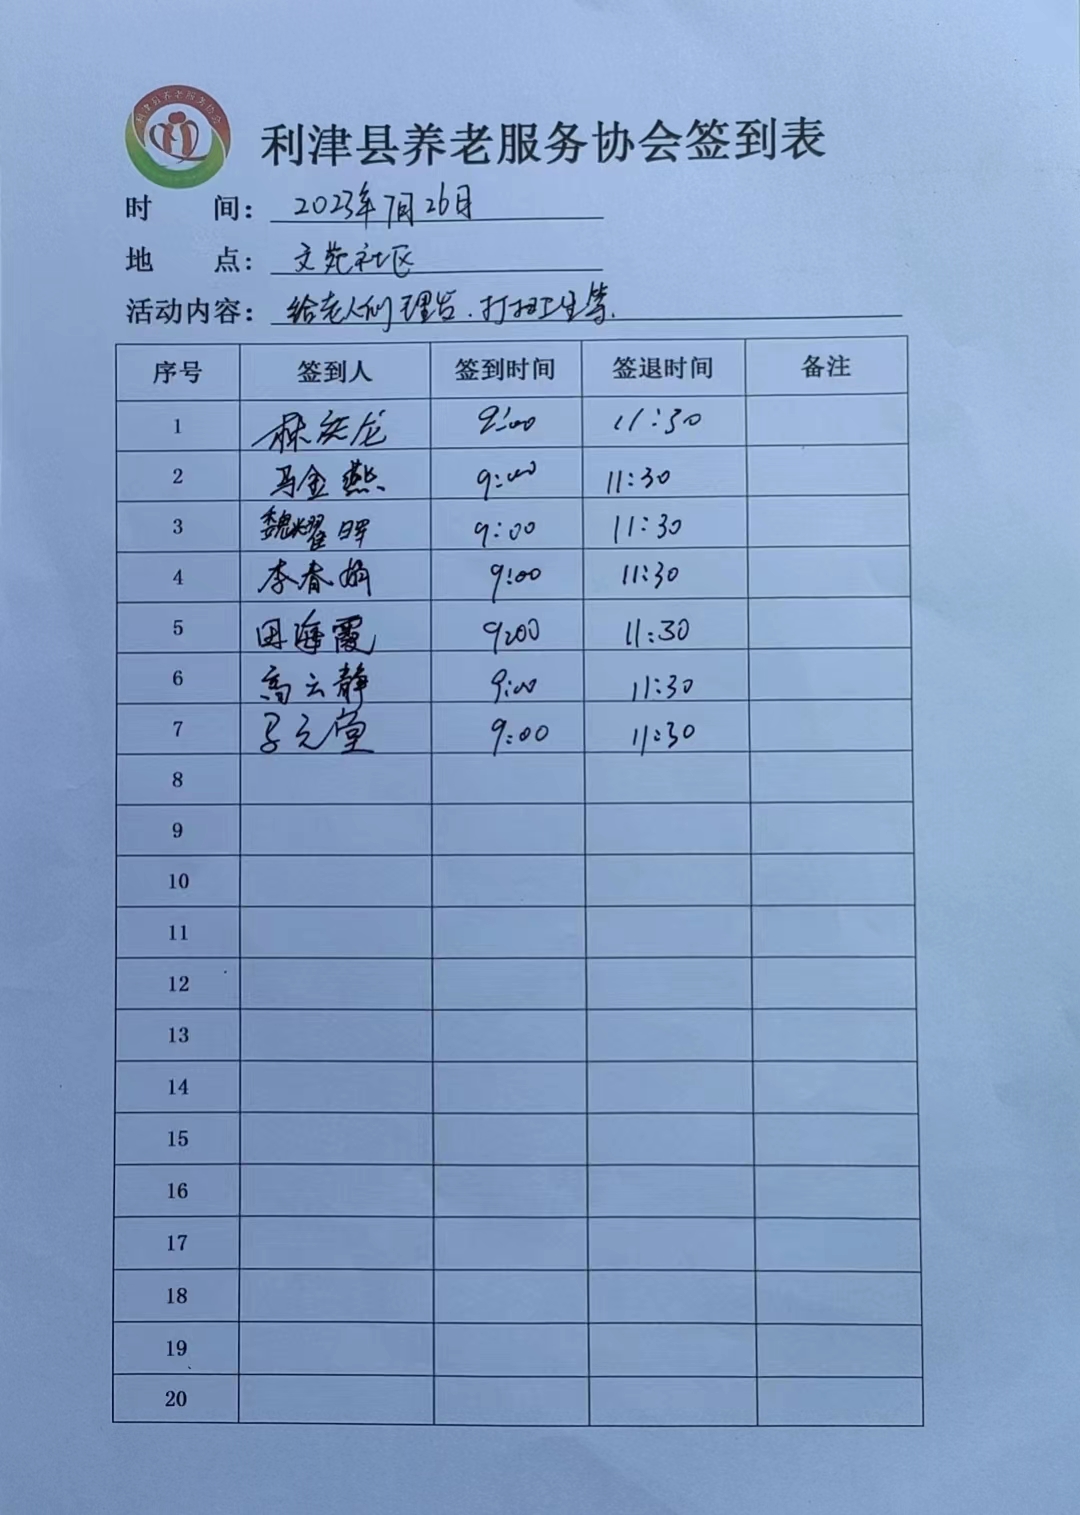 利津县养老服务协会
利津县养老服务协会签到表
时 间: 2023年7月26日
地 点: 文苑社区
活动内容: 给老人们理发.打扫卫生等.
序号 签到人 签到时间 签退时间 备注
1 林庆龙 9:00 11:30
2 马金燕 9:00 11:30
3 魏耀晖 9:00 11:30
4 李春娟 9:00 11:30
5 田海霞 9:00 11:30
6 高云静 9:00 11:30
7 9:00 11:30
8
9
10
11
12
13
14
15
16
17
18
19
20